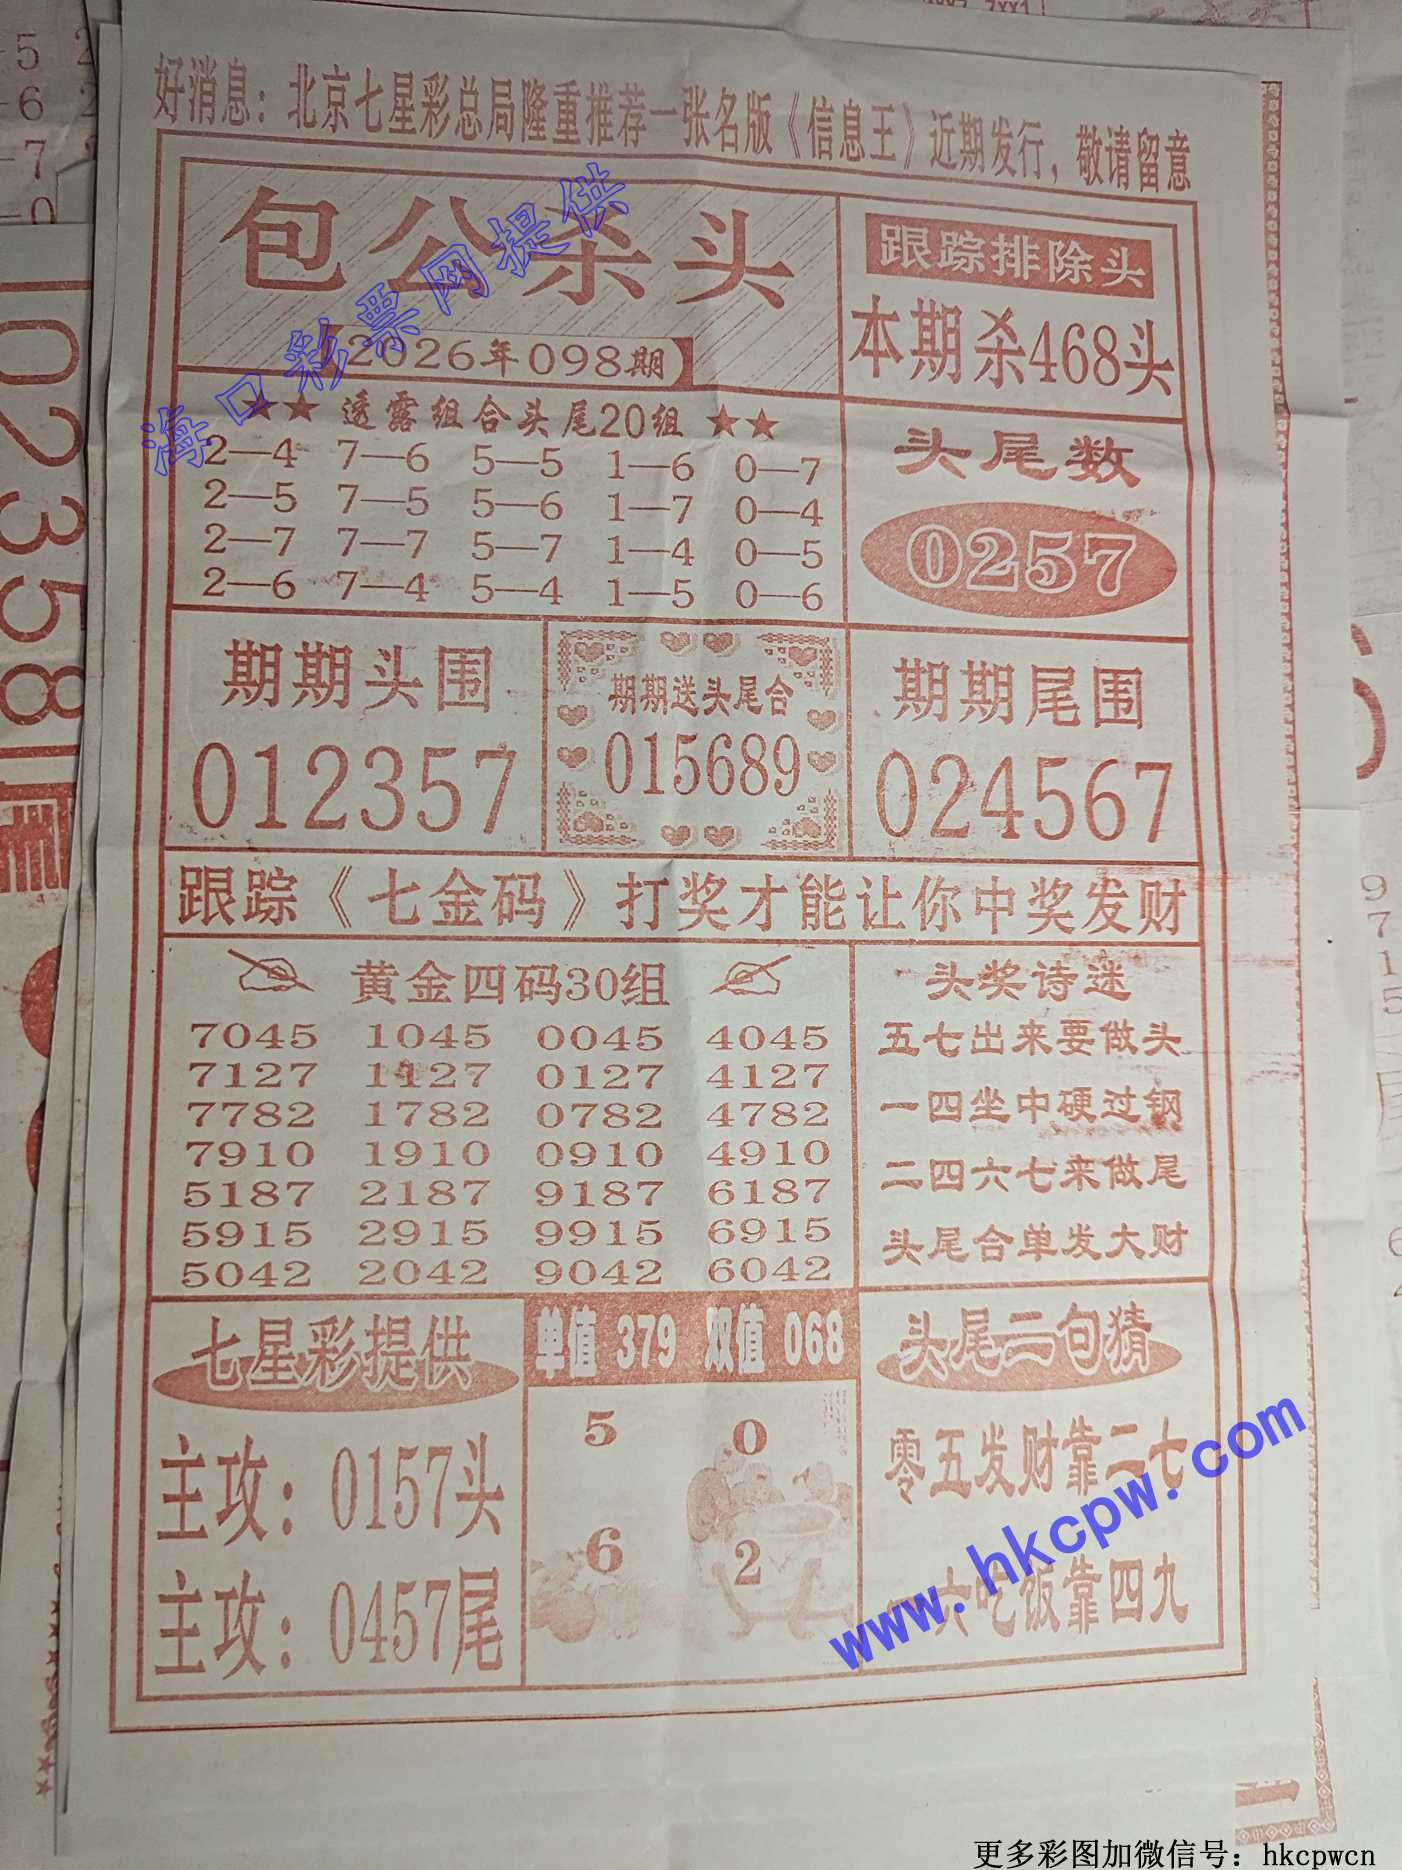 好消息：北京七星彩总局隆重推荐一张名版《信息王》近期发行，敬请留意
包公杀头
2026年098期
跟踪排除头
本期杀468头
★★ 透露组合头尾20组 ★★
2—4 7—6 5—5 1—6 0—7
2—5 7—5 5—6 1—7 0—4
2—7 7—7 5—7 1—4 0—5
2—6 7—4 5—4 1—5 0—6
头尾数
0257
期期头围
012357
期期送头尾合
015689
期期尾围
024567
跟踪《七金码》打奖才能让你中奖发财
黄金四码30组
7045 1045 0045 4045
7127 1127 0127 4127
7782 1782 0782 4782
7910 1910 0910 4910
5187 2187 9187 6187
5915 2915 9915 6915
5042 2042 9042 6042
头奖诗迷
五七出来要做头
一四坐中硬过钢
二四六七来做尾
头尾合单发大财
七星彩提供
主攻：0157头
主攻：0457尾
单值 379 双值 068
5 0
6 2
头尾二句猜
零五发财靠二七
六吃饭靠四九
海口彩票网提供
www.hkcpw.com
更多彩图加微信号：hkcpwcn
102358